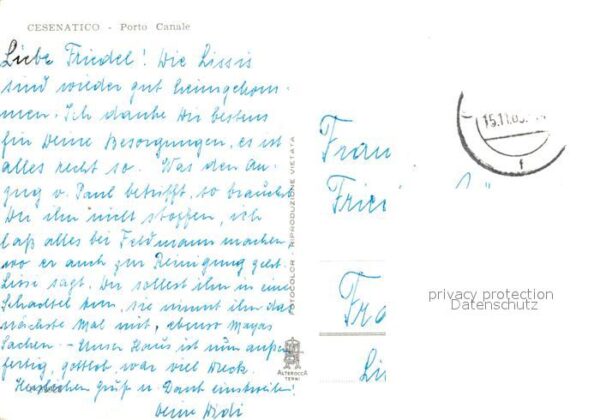 CESENATICO - Porto Canale
Liebe Friedel! Die Lissis
sind wieder gut heimgekom-
men. Ich danke Dir bestens
für Deine Besorgungen, es ist
alles recht so. Was den An-
zug v. Paul betrifft, so brauchst
Du ihn nicht stopfen, ich
laß alles bei Feldmann machen
wo er auch zur Reinigung geht.
Lissi sagt, Du sollest ihn in eine
Schachtel tun, sie nimmt ihn das
nächste Mal mit, ebenso Mayas
Sachen. - Unser Haus ist nun außen
fertig, gottlob, war viel Dreck.
Herzlichen Gruß u. Dank einstweilen!
Deine
FOTOCOLOR - RIPRODUZIONE VIETATA
ALTEROCCA
TERNI
15.11.63
f
Frau
Frie
Fra
Li
privacy protection
Datenschutz